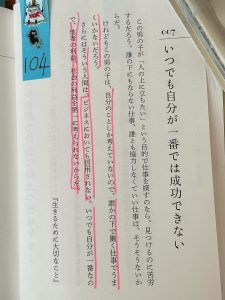 007
いつでも自分が一番では成功できない
この男の子が「人の上に立ちたい」という目的で仕事を探すのなら、見つけるのに苦労
するだろう。誰の下にもならない仕事、誰とも協力しなくていい仕事は、そうそうないか
らだ。
けれどもこの男の子は、自分のことしか考えていないので、誰かの下で働く仕事でもうま
くいかないだろう。
さらにそういう人間は、ビジネスにおいても信用されない。いつでも自分が一番なの
で、他者の利益、社会の利益を第一に考えられないからだ。
『生きるために大切なこと』
104